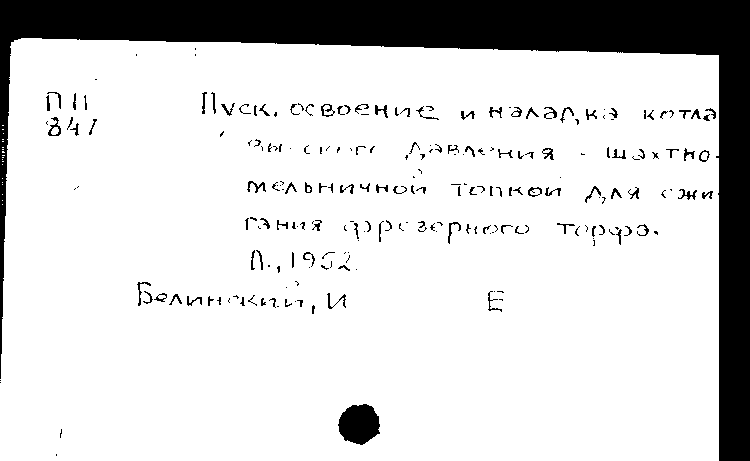 ПП Пуск, освоение и наладка котла
847 высокого давления - шахтно-
мельничной топкой для сжи-
гания фрезерного торфа.
Л., 1952.
Белинский, И Е